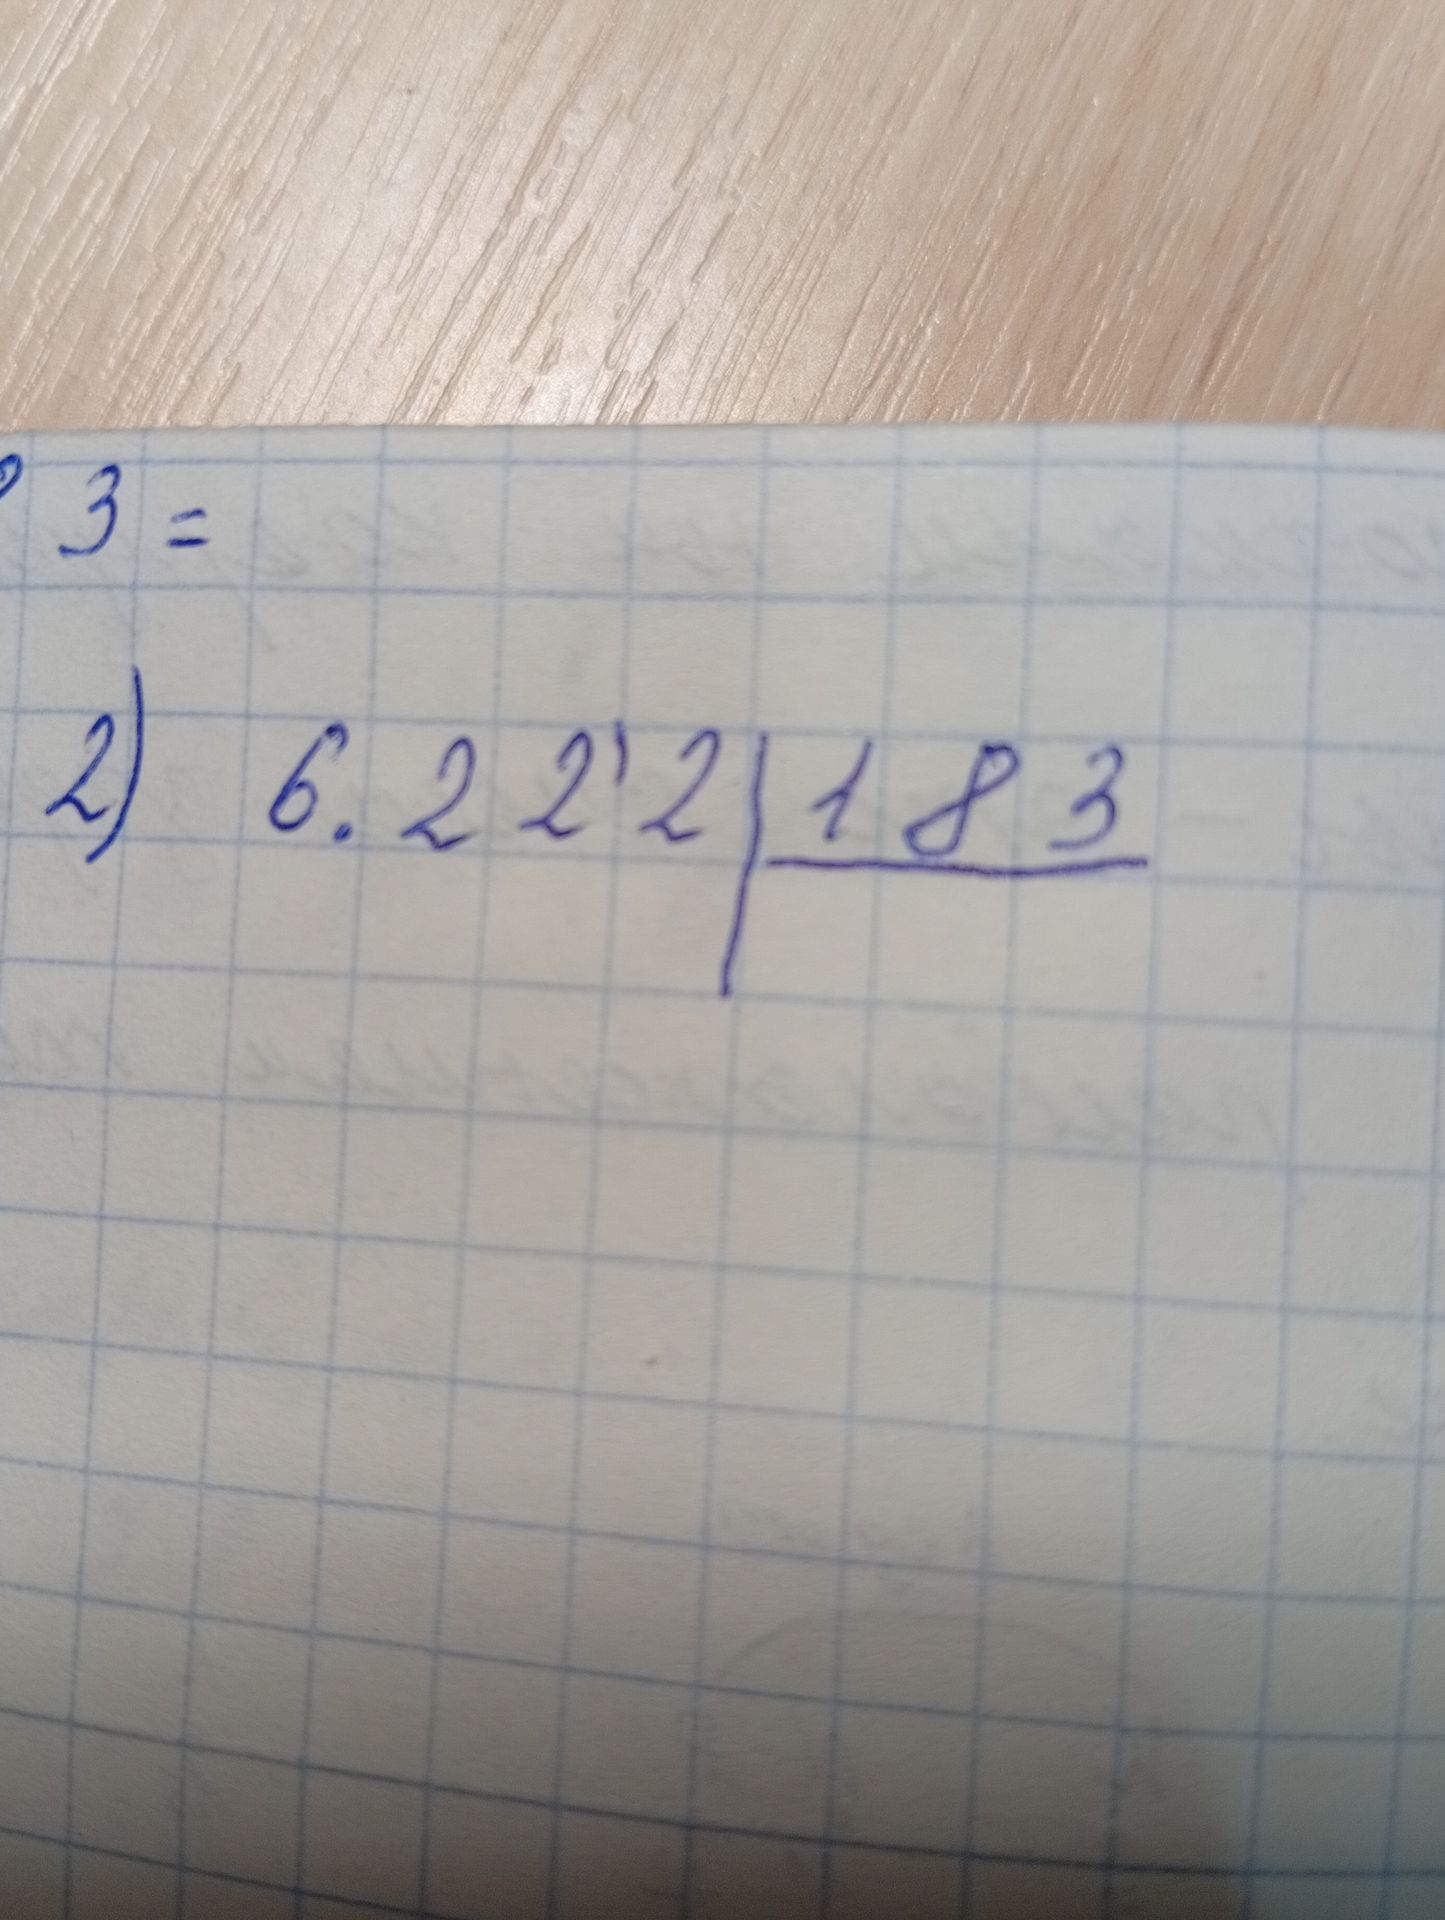 3 =
2) 6.22'2 | 183